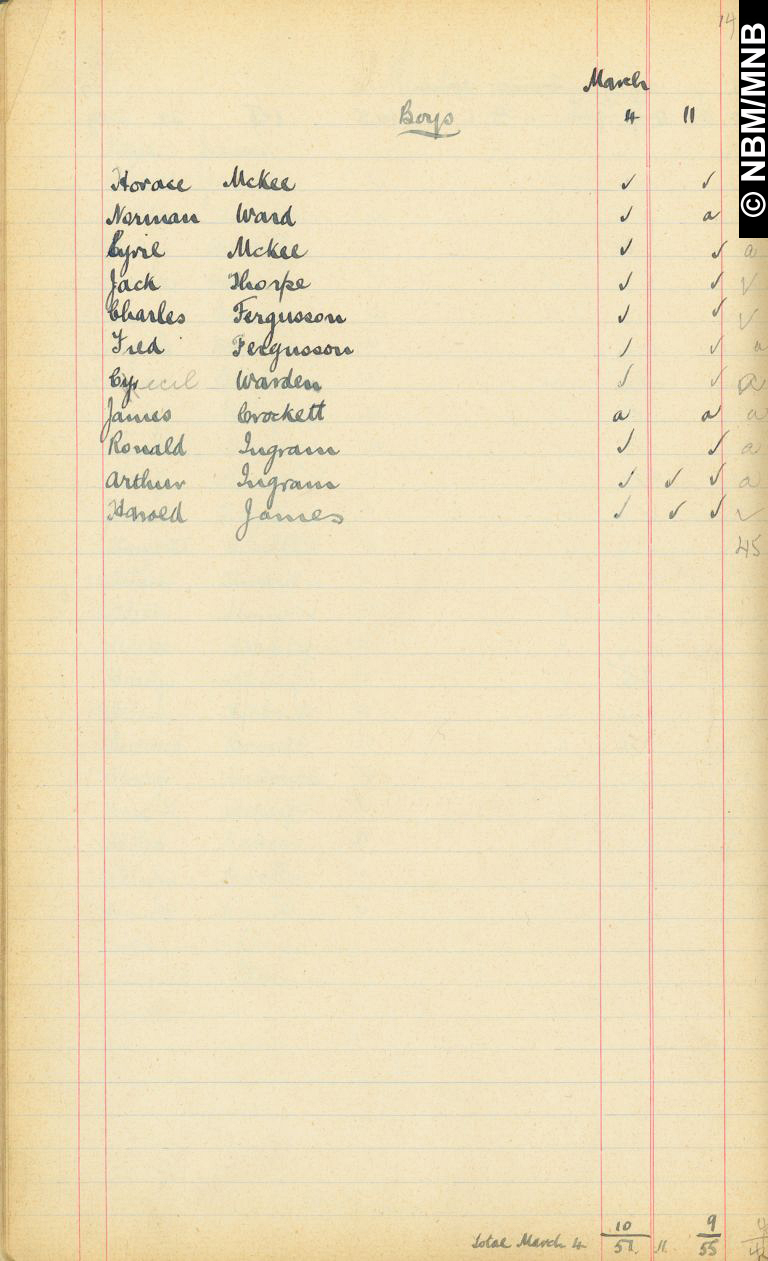 14
© NBM/MNB
March
Boys 4 11
Horace McKee ✓ ✓
Norman Ward ✓ a
Cyril McKee ✓ ✓ a
Jack Thorpe ✓ ✓ ✓
Charles Fergusson ✓ ✓ ✓
Fred Fergusson ✓ ✓ a
Cecil Warden ✓ ✓ a
James Crockett a a a
Ronald Ingram ✓ ✓ a
Arthur Ingram ✓ ✓ ✓ a
Harold James ✓ ✓ ✓ ✓
45
10 9
Total March 4 51. 11. 55